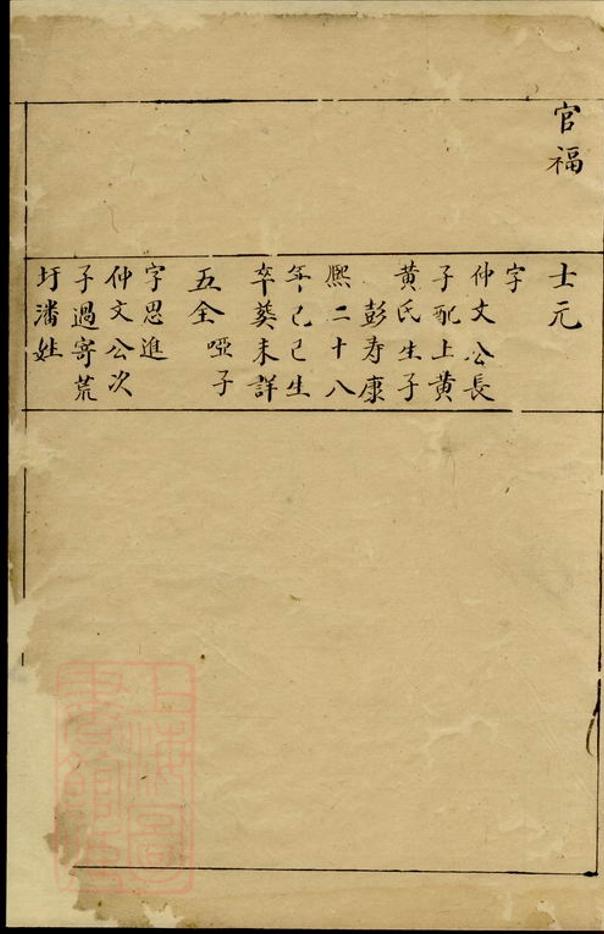 官福
士元
字
仲文公長
子配上黄
黄氏生子
彭寿康
熈二十八
年己巳生
卒葵未詳
五全 啞子
字思進
仲文公次
子過寄荒
圩潘姓
上海圖
書館藏